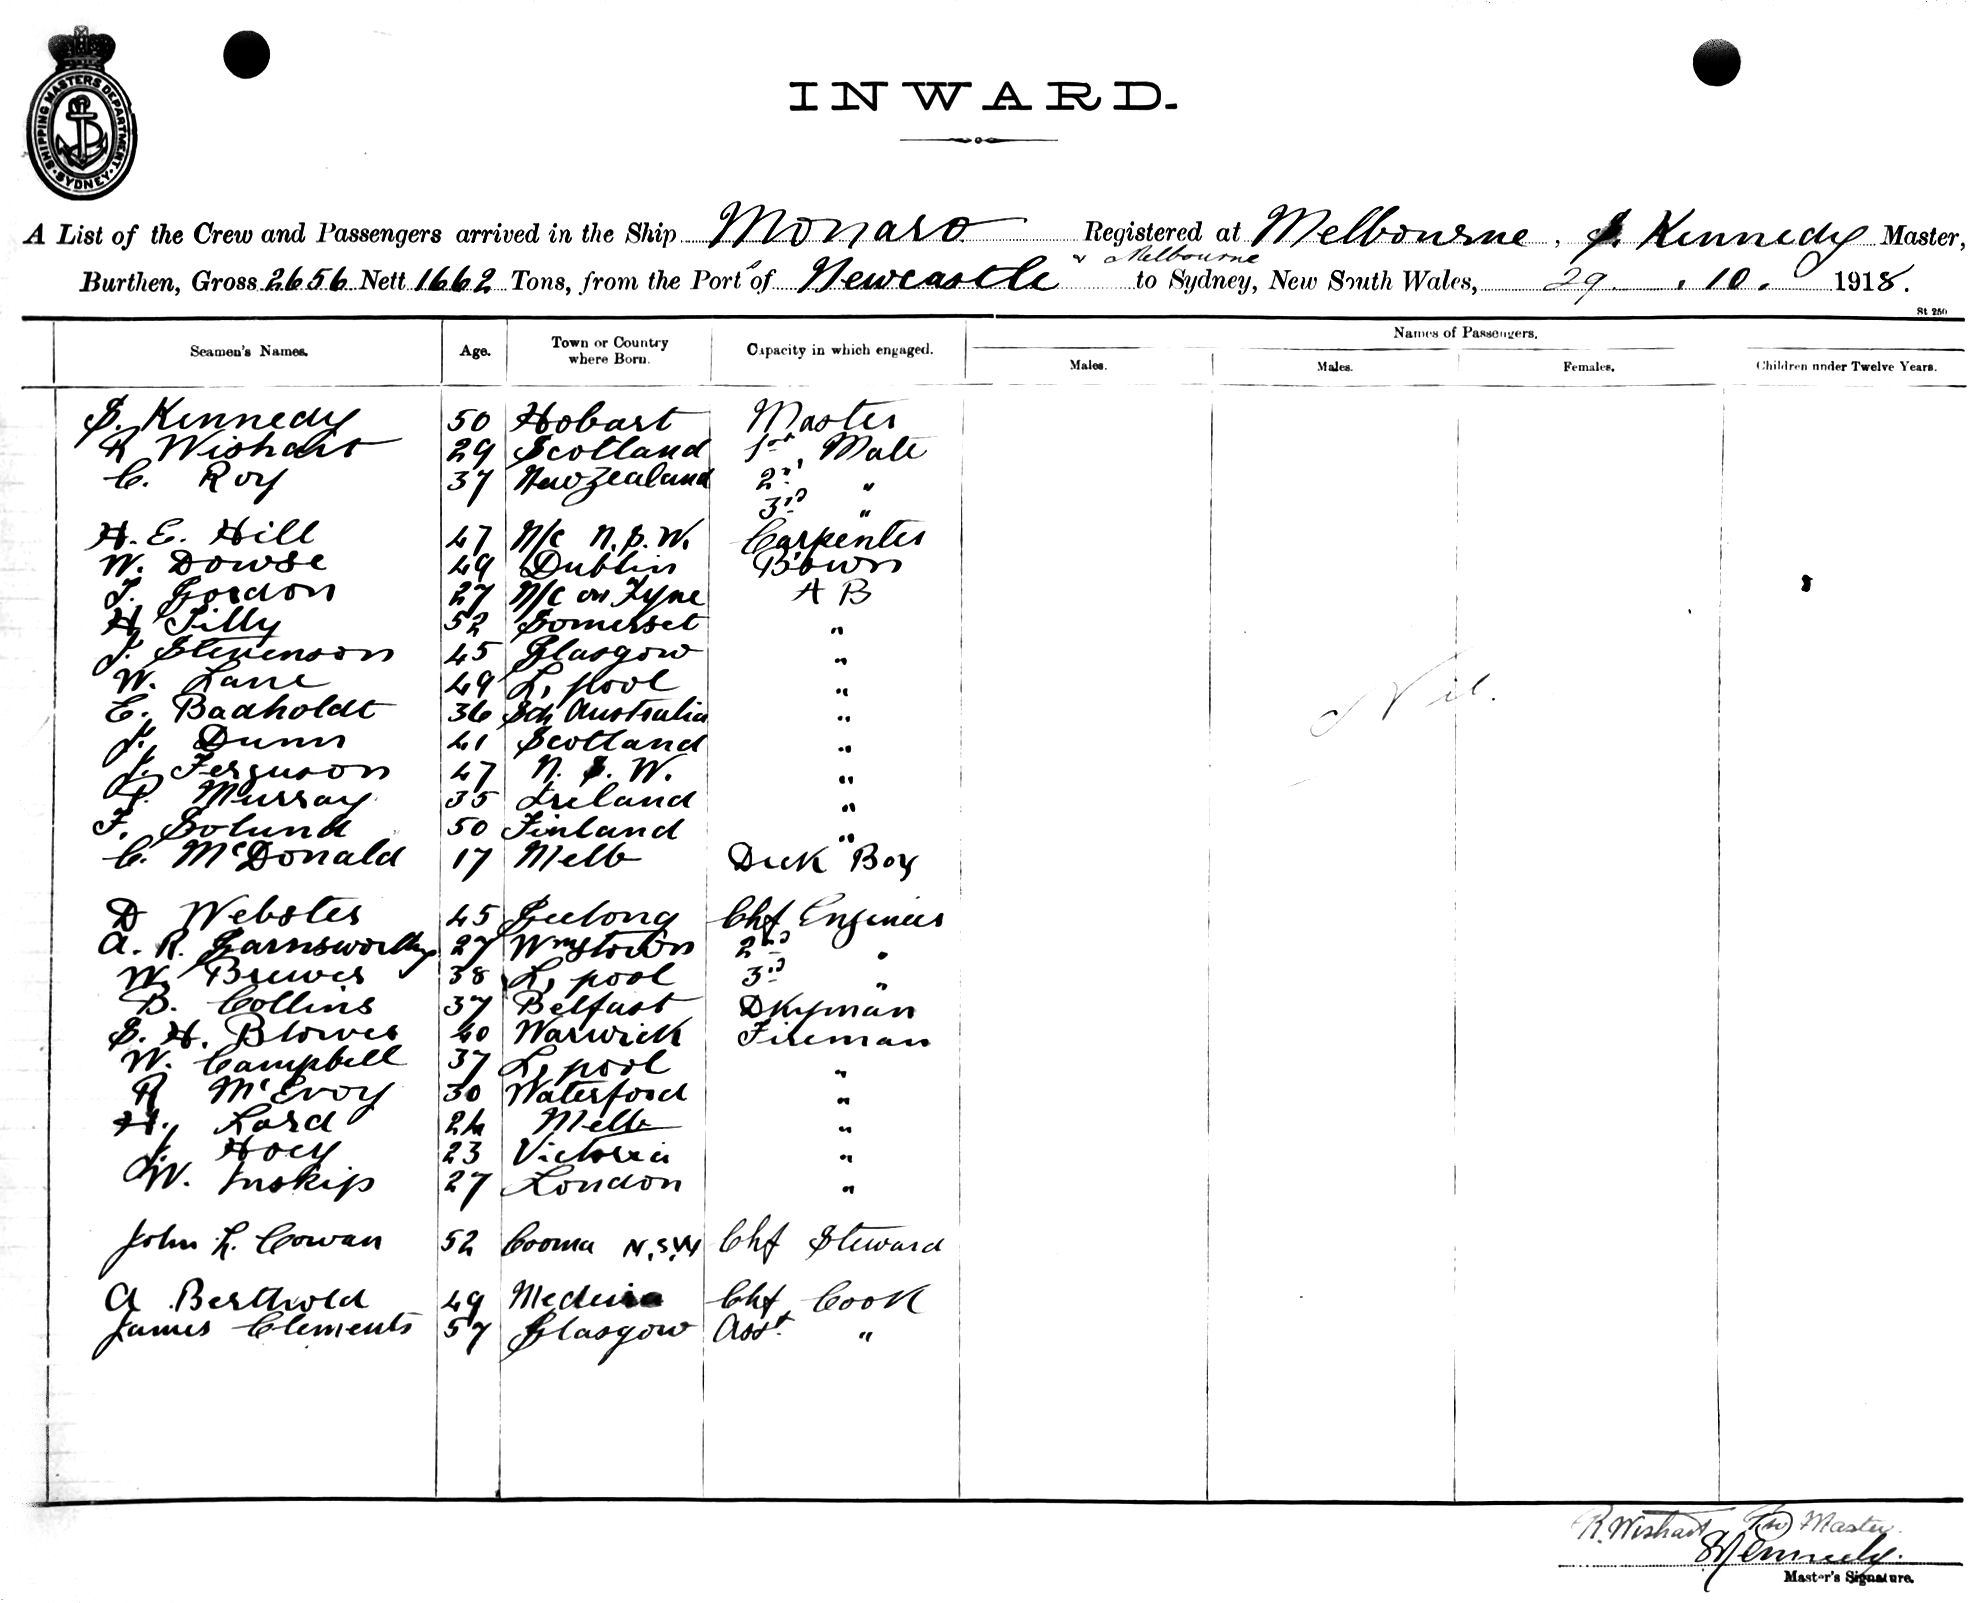 SHIPPING MASTERS DEPARTMENT SYDNEY
INWARD.
A List of the Crew and Passengers arrived in the Ship Monaro Registered at Melbourne, S. Kennedy Master,
& Melbourne
Burthen, Gross 2656 Nett 1662 Tons, from the Ports of Newcastle to Sydney, New South Wales, 29. 10. 1918.
St 250
Names of Passengers.
Seamen's Names. Age. Town or Country where Born. Capacity in which engaged. Males. Males. Females. Children under Twelve Years.
S. Kennedy 50 Hobart Master
R Wishart 29 Scotland 1st Mate
C. Roy 37 New Zealand 2nd "
3rd "
H. E. Hill 47 N/c N.S.W. Carpenter
W. Dowse 49 Dublin Bown
T. Gordon 27 N/c on Tyne A B
H Tilly 52 Somerset "
J. Stevenson 45 Glasgow "
W. Lane 49 L,pool "
E. Badholdt 36 Sth Australia "
J. Dunn 41 Scotland "
J. Ferguson 47 N. S. W. "
P. Murray 35 Ireland "
F. Solund 50 Finland "
C. McDonald 17 Melb Deck Boy
D Webster 45 Geelong Chf Engineer
A. R. Garnsworthy 27 Wmstown 2nd "
W. Brewer 38 L,pool 3rd "
B. Collins 37 Belfast Dkyman
S. H. Blower 40 Warwick Fireman
W. Campbell 37 L,pool "
R McEvoy 30 Waterford "
H. Lard 24 Melb "
J. Hoey 23 Victoria "
W. Inskip 27 London "
John L. Cowan 52 Cooma N.S.W Chf Steward
A Berthold 49 Chf Cook
James Clements 57 Glasgow Asst "
Nil.
R. Wishart For Master.
S Kennedy.
Master's Signature.